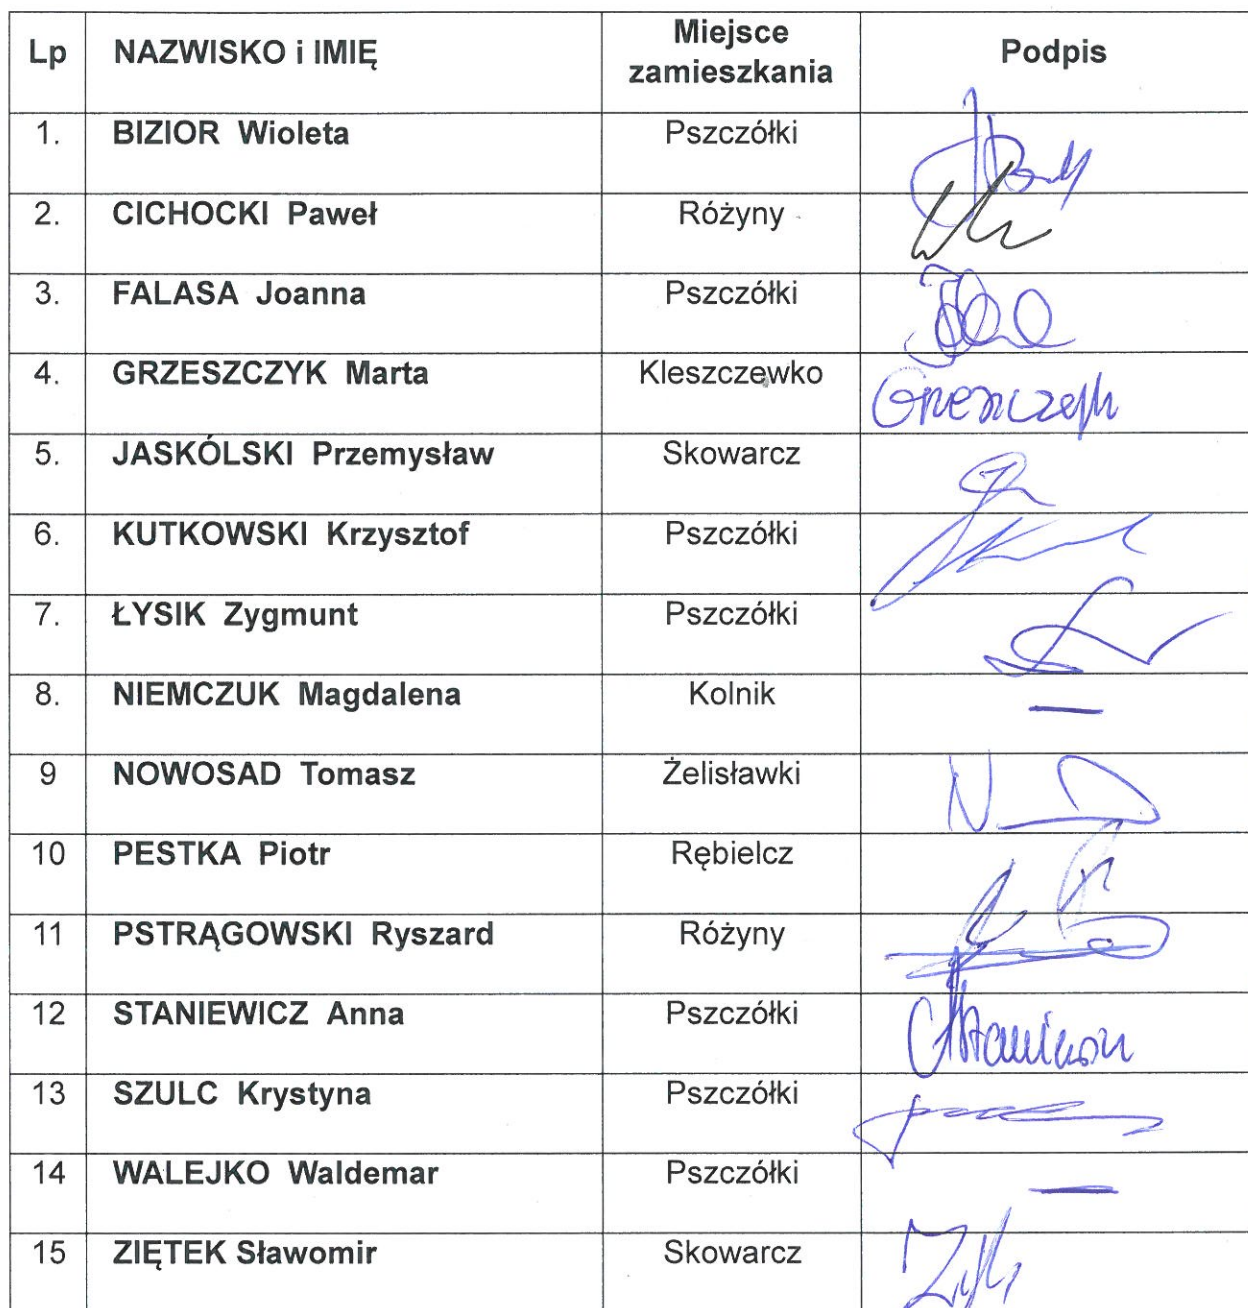 Lp NAZWISKO i IMIĘ Miejsce zamieszkania Podpis
1. BIZIOR Wioleta Pszczółki
2. CICHOCKI Paweł Różyny
3. FALASA Joanna Pszczółki
4. GRZESZCZYK Marta Kleszczewko Grzeszczyk
5. JASKÓLSKI Przemysław Skowarcz
6. KUTKOWSKI Krzysztof Pszczółki
7. ŁYSIK Zygmunt Pszczółki
8. NIEMCZUK Magdalena Kolnik —
9 NOWOSAD Tomasz Żelisławki
10 PESTKA Piotr Rębielcz
11 PSTRĄGOWSKI Ryszard Różyny
12 STANIEWICZ Anna Pszczółki
13 SZULC Krystyna Pszczółki
14 WALEJKO Waldemar Pszczółki —
15 ZIĘTEK Sławomir Skowarcz